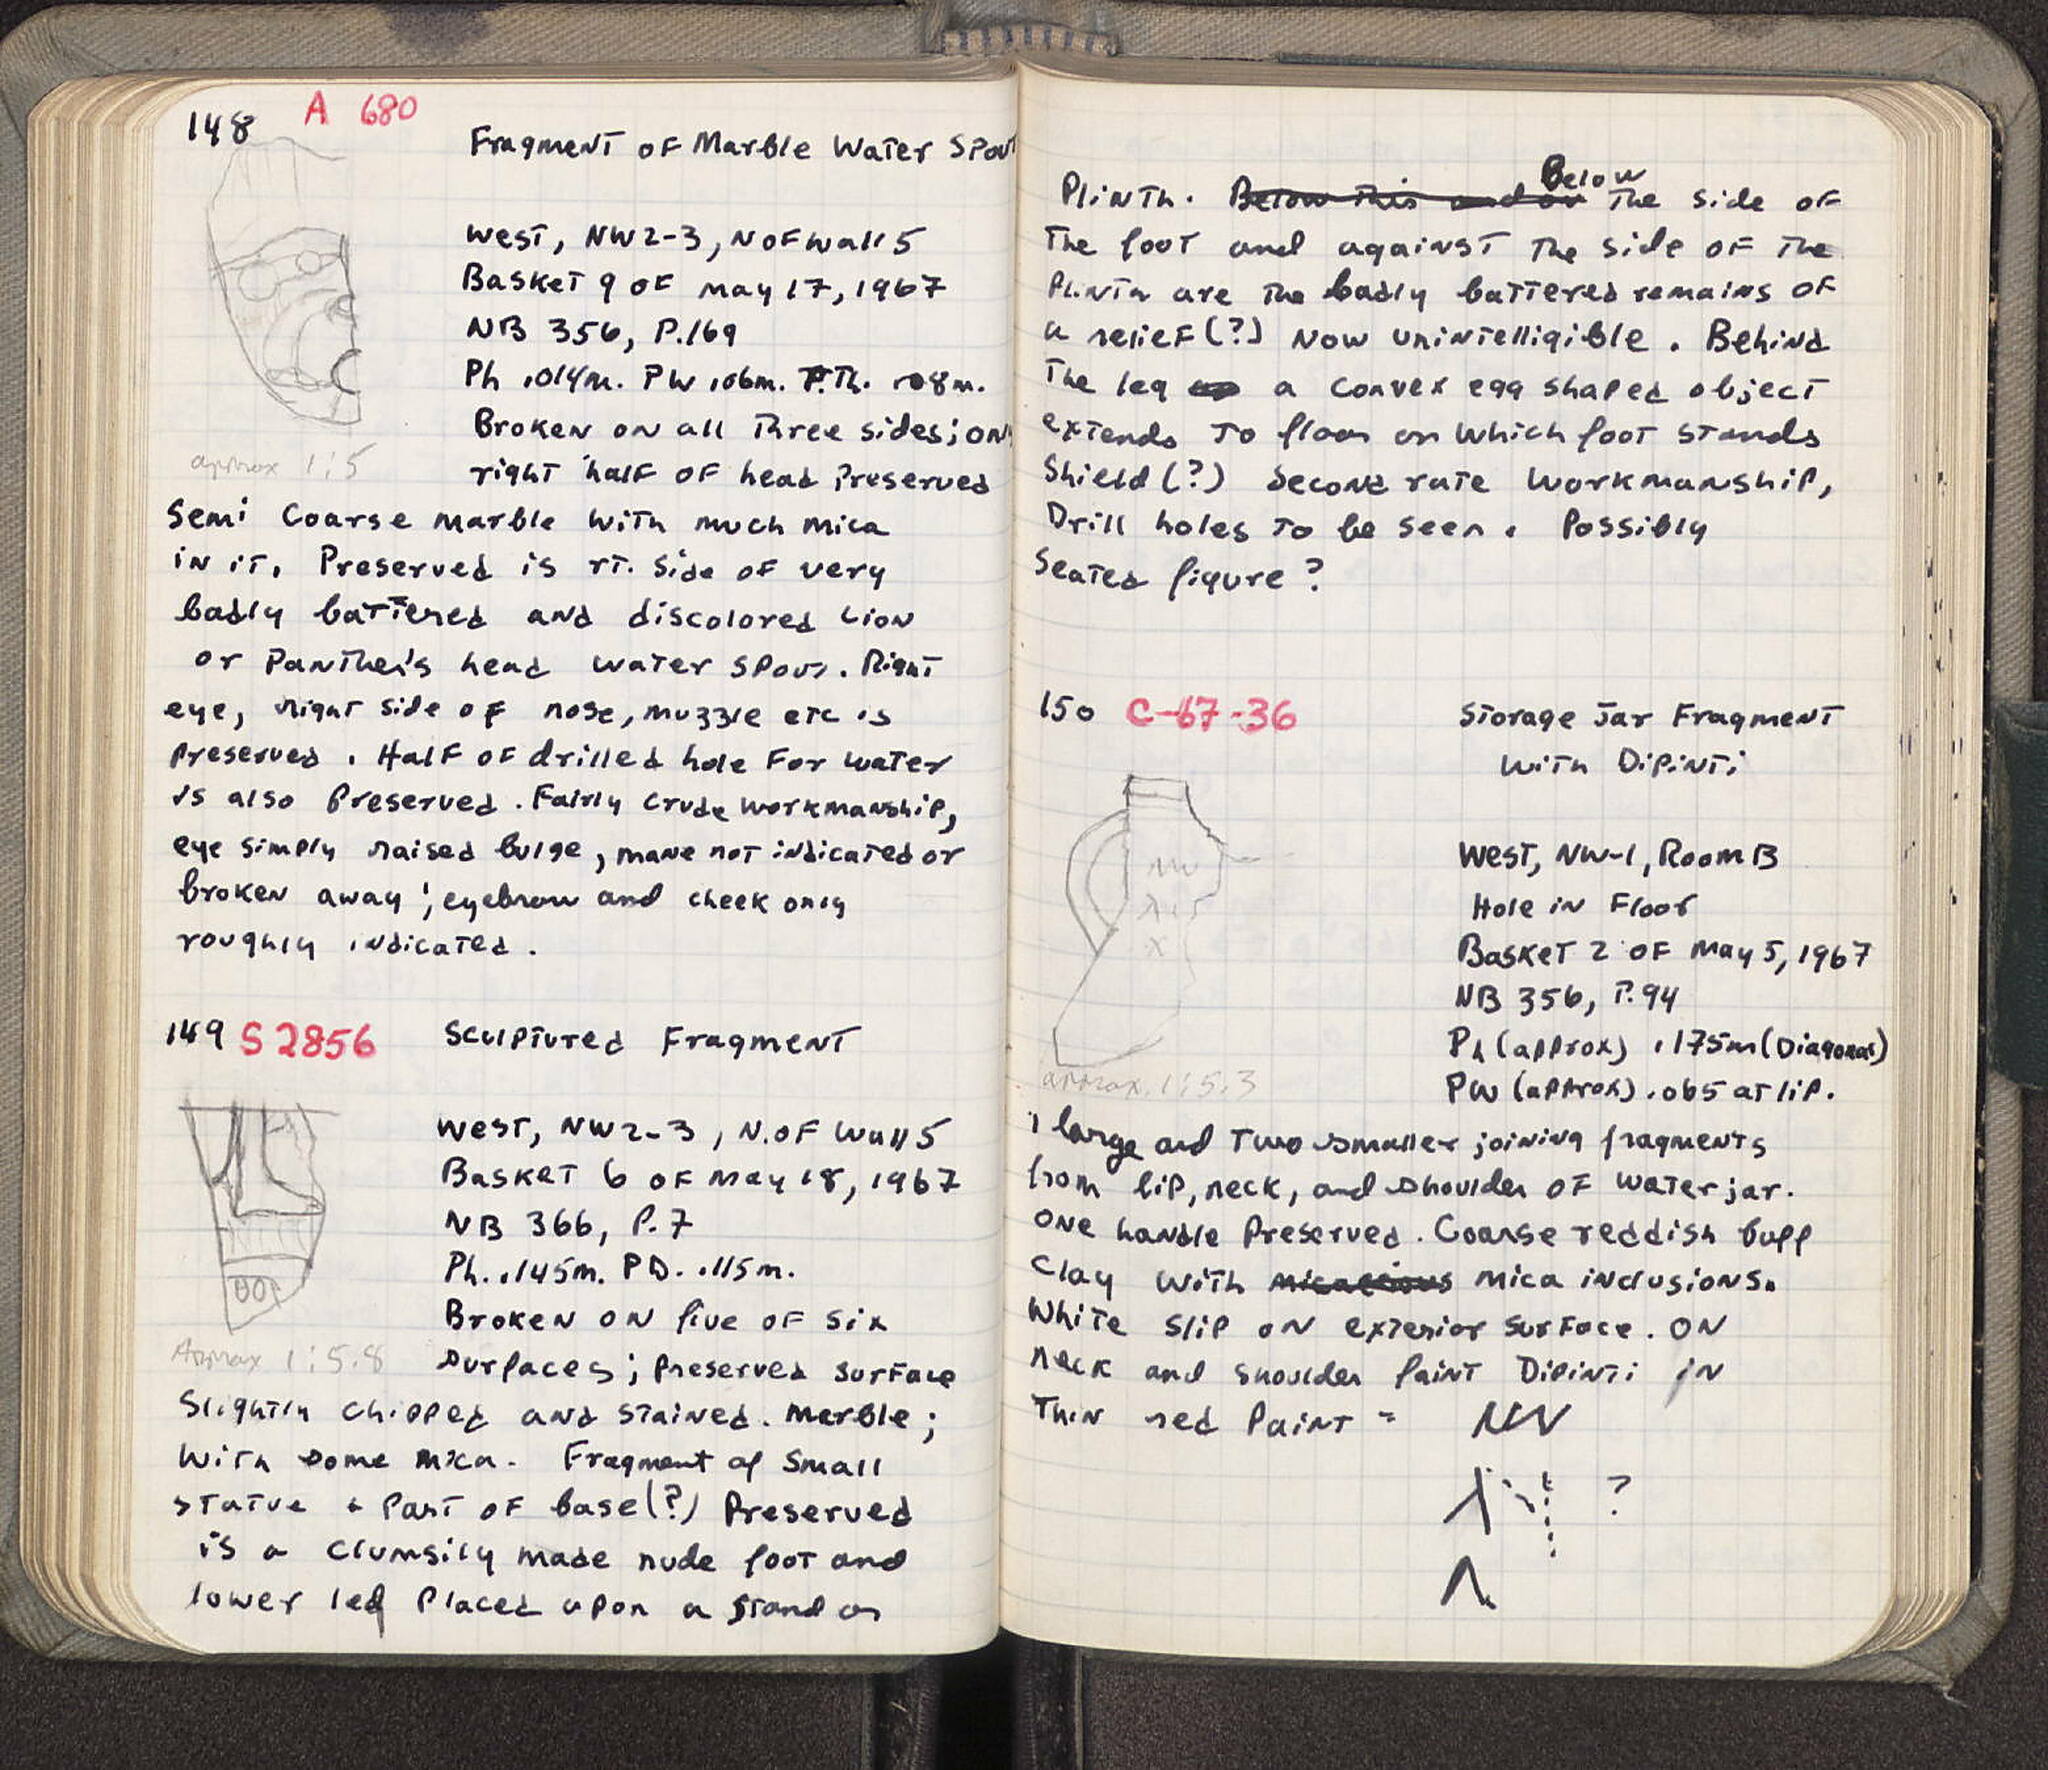 148 A 680
Fragment of Marble Water Spout
West, NW2-3, N of Wall 5
Basket 9 of May 17, 1967
NB 356, P.169
Ph .014m. PW .06m. P.Th. .08m.
Broken on all three sides; only
approx 1:5
right half of head preserved
Semi coarse marble with much mica
in it. Preserved is rt. side of very
badly battered and discolored Lion
or Panther's head water spout. Right
eye, right side of nose, muzzle etc is
preserved. Half of drilled hole for water
is also preserved. Fairly crude workmanship,
eye simply raised bulge, mane not indicated or
broken away; eyebrow and cheek only
roughly indicated.
149 S 2856 Sculptured Fragment
West, NW2-3, N. of Wall 5
Basket 6 of May 18, 1967
NB 366, P.7
Ph. .145m. PD. .115m.
Broken on five of six
Approx 1:5.8
surfaces; preserved surface
Slightly chipped and stained. Marble;
with some mica. Fragment of small
statue + part of base(?) Preserved
is a clumsily made nude foot and
lower leg placed upon a stand or
Below
Plinth. Below this and on the side of
the foot and against the side of the
Plinth are the badly battered remains of
a relief(?) now unintelligible. Behind
the leg a convex egg shaped object
extends to floor on which foot stands
Shield(?) Second rate workmanship,
Drill holes to be seen. Possibly
Seated figure?
150 C-67-36
Storage Jar Fragment
with Dipinti
West, NW-1, Room B
Hole in Floor
Basket 2 of May 5, 1967
NB 356, P.94
Ph (approx) .175m (Diagonal)
PW (approx) .065 at lip.
approx. 1:5.3
1 large and two smaller joining fragments
from lip, neck, and shoulder of water jar.
One handle preserved. Coarse reddish buff
clay with micacious mica inclusions.
White slip on exterior surface. On
neck and shoulder faint Dipinti in
thin red paint =
?